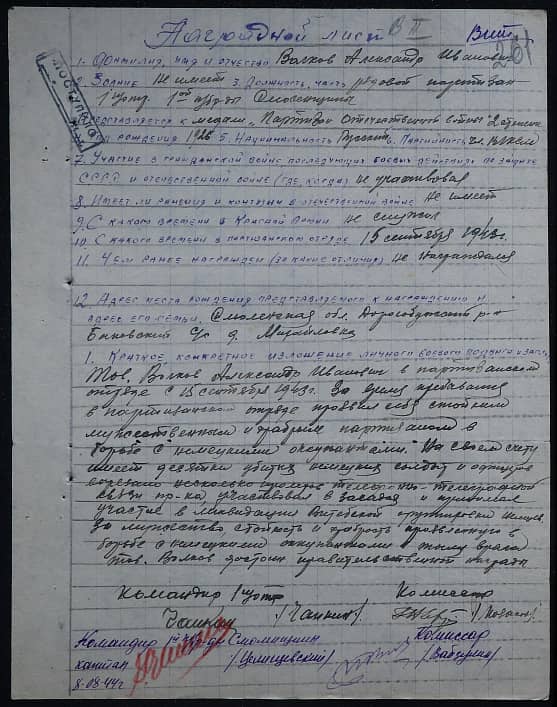 Наградной лист
1. Фамилия, имя и отчество Волков Александр Иванович
2. Звание Не имеет 3. Должность, часть рядовой партизан
1 1ой Смоленщина
Представляется к медали "Партизан Отечественной войны" II степени
рождения 1926 5. Национальность Русский 6. Партийность чл. ВЛКСМ
7. Участие в гражданской войне последующих боевых действиях по защите
СССР и отечественной войне (где, когда) не участвовал
8. Имеет ли ранения и контузии в отечественной войне Не имеет
9. С какого времени в Красной Армии Не служил
10. С какого времени в партизанском отряде 15 сентября 1943г.
11. Чем ранее награжден (за какие отличия) не награждался
12. Адрес места рождения представляемого к награждению и
адрес его семьи. Смоленская обл. Дорогобужский р-н
с/с д. Михайловка
1. Краткое конкретное изложение личного боевого подвига
Тов. Волков Александр Иванович в партизанском
отряде с 15 сентября 1943г. За время пребывания
в партизанском отряде проявил себя стойким
мужественным и храбрым партизаном в
борьбе с немецкими оккупантами. На своем счету
имеет десятки убитых немецких солдат и офицеров
несколько
связи пр-ка, участвовал в засадах и принимал
участие в ликвидации Витебской группировки немцев
За мужество стойкость и храбрость проявленную в
борьбе с немецкими оккупантами в тылу врага
тов. Волков достоин правительственной награды
Командир 1 Комиссар
Командир 1 Смоленщина Комиссар
капитан
8-08-44г.